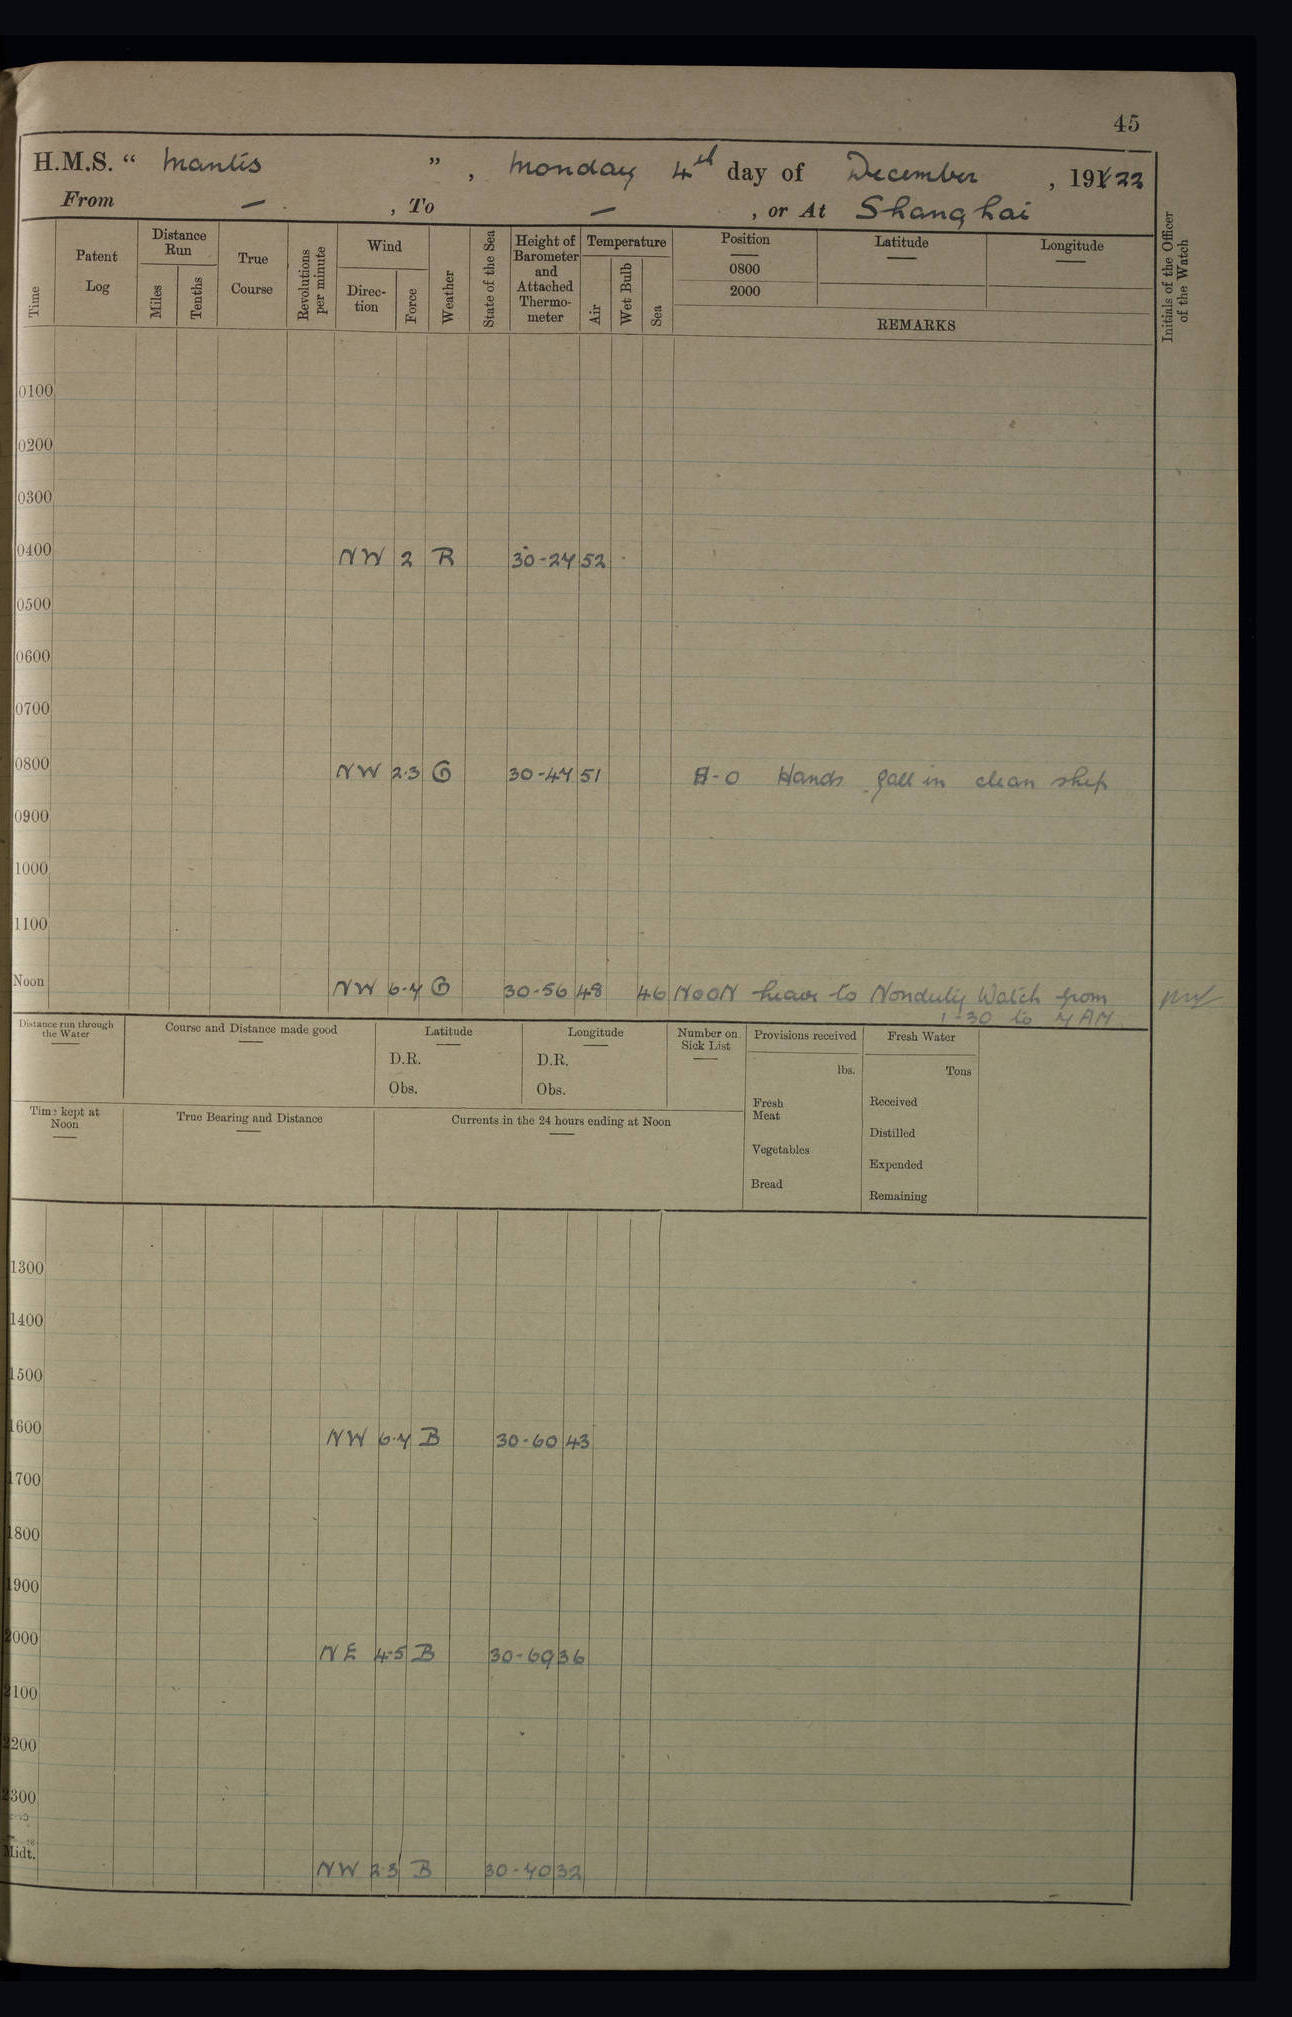 45
H.M.S. “ Mantis ” , Monday 4th day of December , 1922
From — , To — , or At Shanghai
Time
Patent Log
Distance Run
Miles
Tenths
True Course
Revolutions per minute
Wind
Direc-tion
Force
Weather
State of the Sea
Height of Barometer and Attached Thermo-meter
Temperature
Air
Wet Bulb
Sea
Position
0800
2000
Latitude
Longitude
REMARKS
Initials of the Officer of the Watch
0100
0200
0300
0400 NW 2 R 30-27 52
0500
0600
0700
0800 NW 2·3 G 30-47 51 8-0 Hands fall in clean ship
0900
1000
1100
Noon NW 6-7 G 30-56 48 46 NOON leave to Nonduty Watch from
1-30 to 7 AM
Distance run through the Water
Course and Distance made good
Latitude
D.R.
Obs.
Longitude
D.R.
Obs.
Number on Sick List
Provisions received
lbs.
Fresh Meat
Vegetables
Bread
Fresh Water
Tons
Received
Distilled
Expended
Remaining
Time kept at Noon
True Bearing and Distance
Currents in the 24 hours ending at Noon
1300
1400
1500
1600 NW 6-7 B 30-60 43
1700
1800
1900
2000 NE 4-5 B 30-69 36
2100
2200
2300
Midt. NW 2-3 B 30-70 32